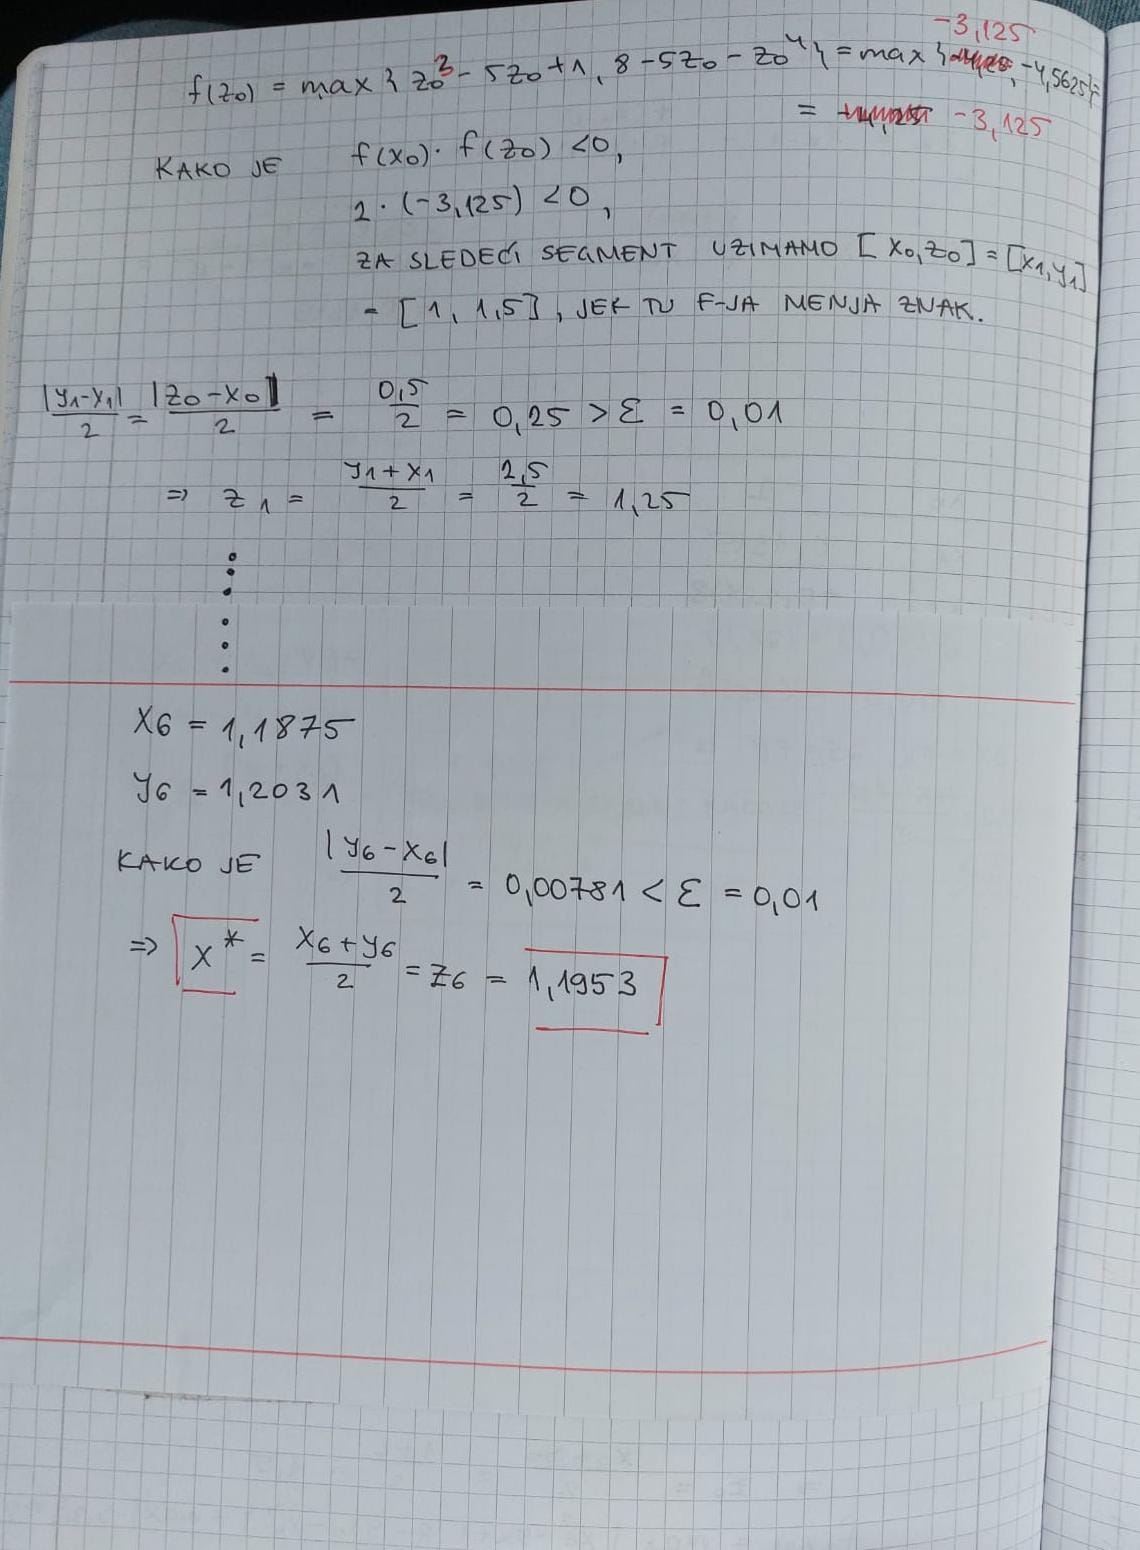 -3,125
f(z₀) = max { z₀³ - 5z₀ + 1, 8 - 5z₀ - z₀⁴ } = max { , -4,5625 } =
= -3,125
KAKO JE f(x₀) · f(z₀) < 0,
2 · (-3,125) < 0,
ZA SLEDEĆI SEGMENT UZIMAMO [x₀, z₀] = [x₁, y₁]
= [1, 1,5], JER TU F-JA MENJA ZNAK.
|y₁-x₁|/2 = |z₀-x₀|/2 = 0,5/2 = 0,25 > ε = 0,01
⇒ z₁ = (y₁+x₁)/2 = 2,5/2 = 1,25
x₆ = 1,1875
y₆ = 1,2031
KAKO JE |y₆-x₆|/2 = 0,00781 < ε = 0,01
⇒ x* = (x₆+y₆)/2 = z₆ = 1,1953